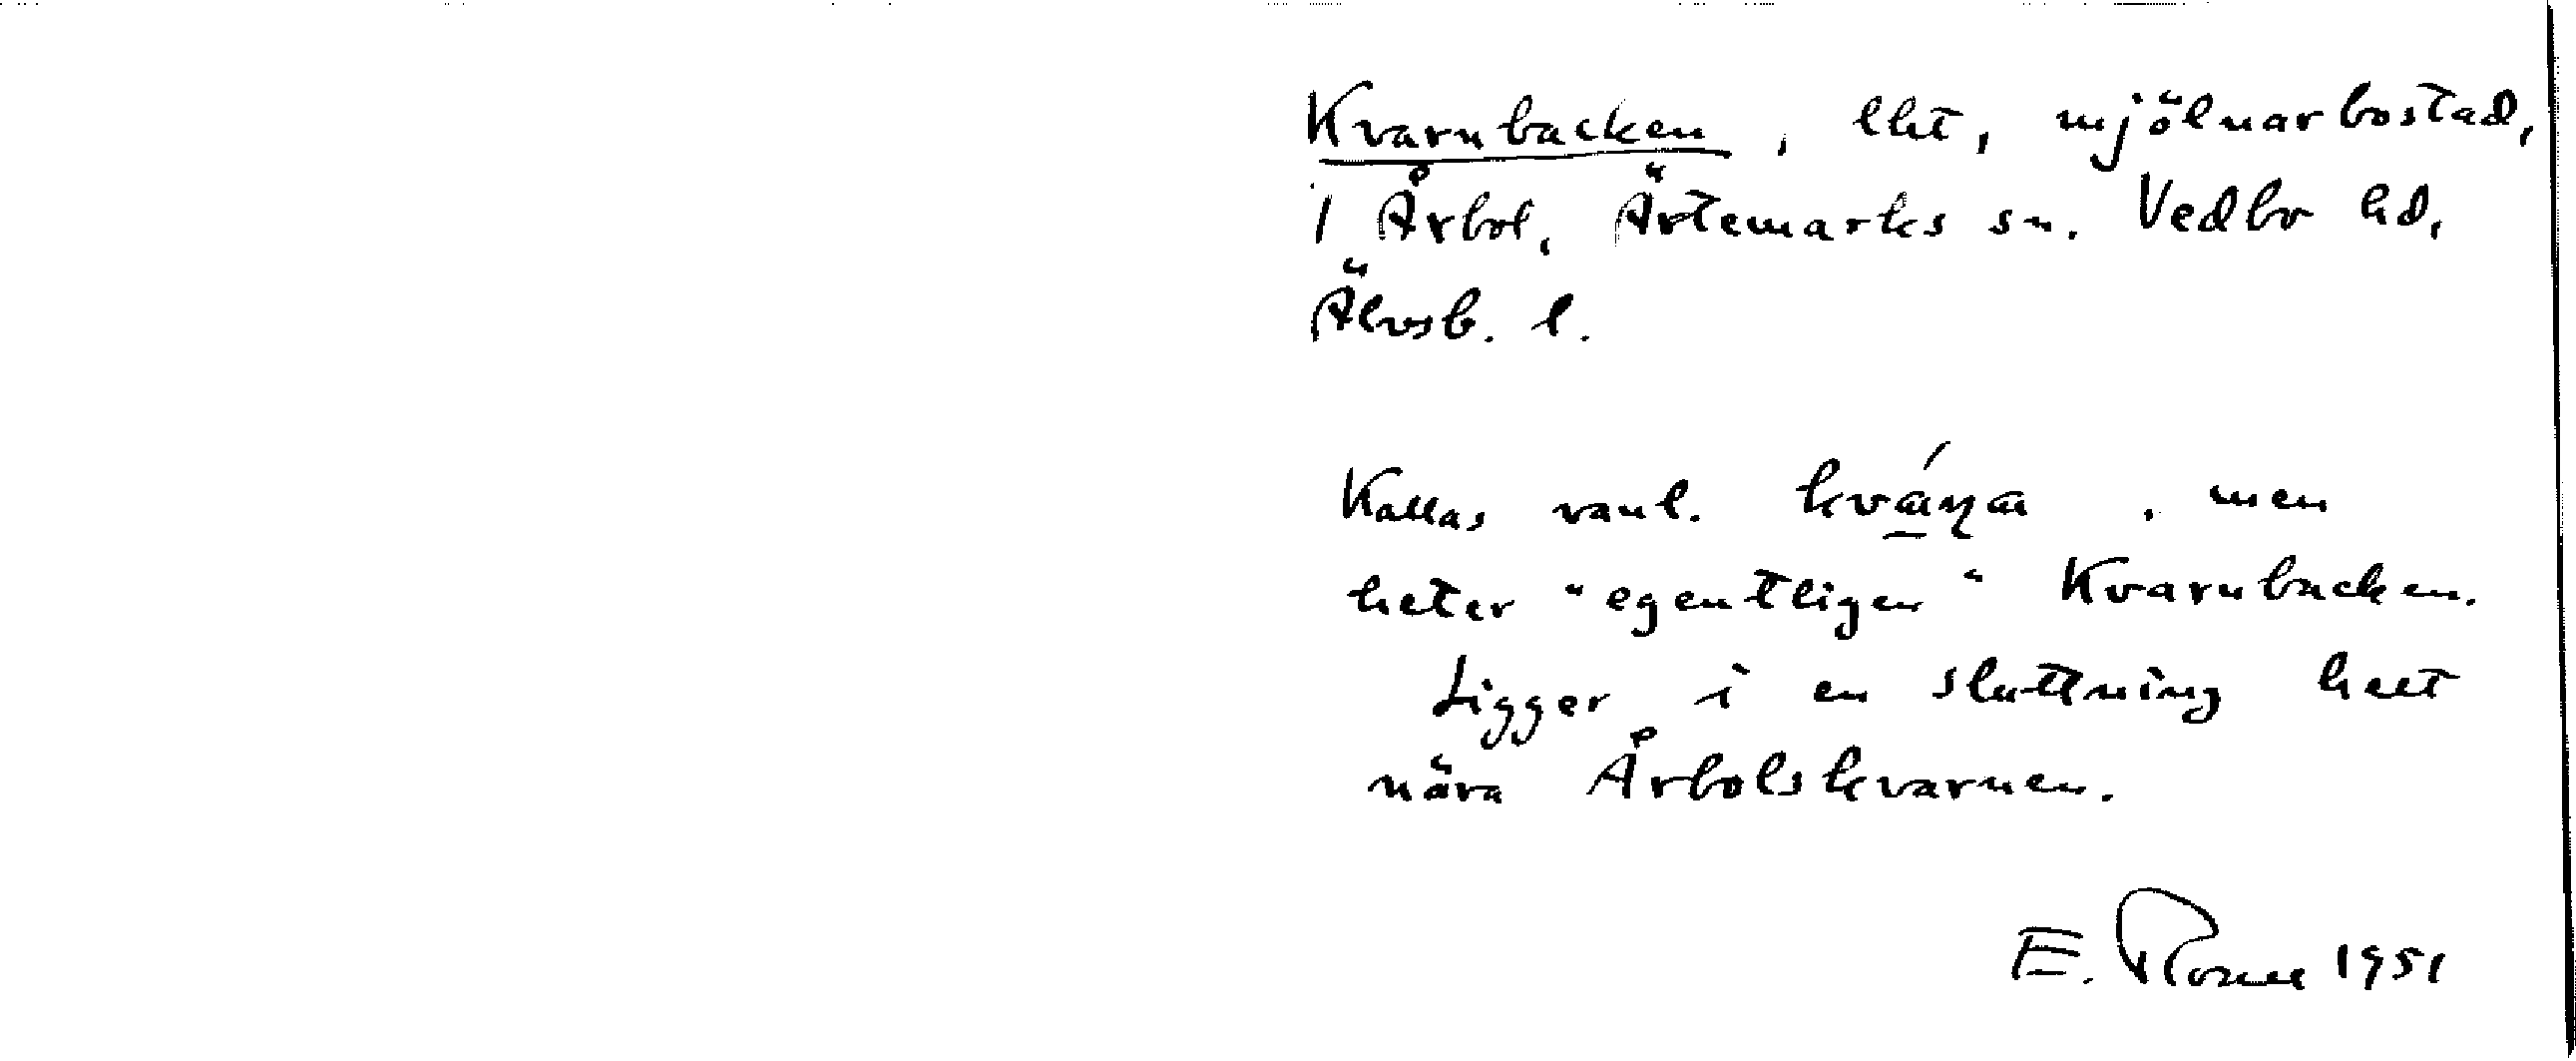 Kvarnbacken, lht, mjölnarbostad,
i Årbol, Ärtemarks sn. Vedbo hd,
Älvsb. l.
Kallas vanl. , men
heter "egentligen" Kvarnbacken.
Ligger i en sluttning helt
nära Årbolskvarnen.
E. 1951